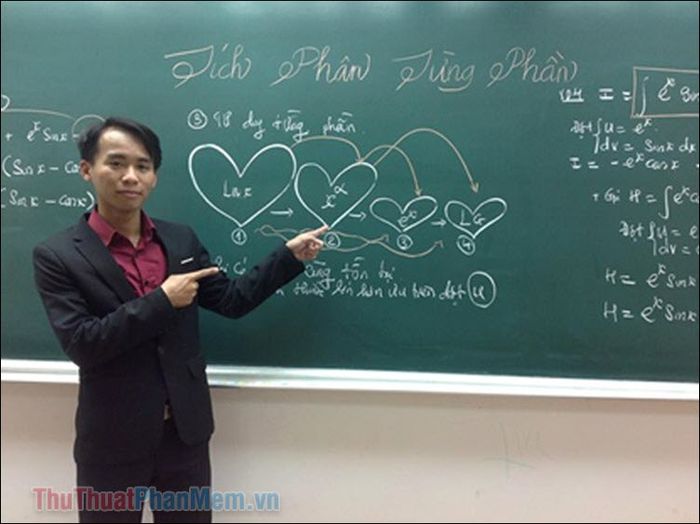 Tích Phân Từng Phần
③ Tư duy từng phần
Lnx
x^α
e^x
LG
① ② ③ ④
tồn tại
lớn hơn ưu tiên đặt u
+ e^x Sinx -
(Sinx - Cosx)
(Sinx - Cosx)
VD4 I = ∫ e^x Sin
Đặt { u = e^x
dv = Sinx dx
I = -e^x Cosx
+ Gọi H = ∫ e^x
Đặt { u = e^x
dv =
H = e^x Sinx
H = e^x Sinx
ThuThuatPhanMem.vn